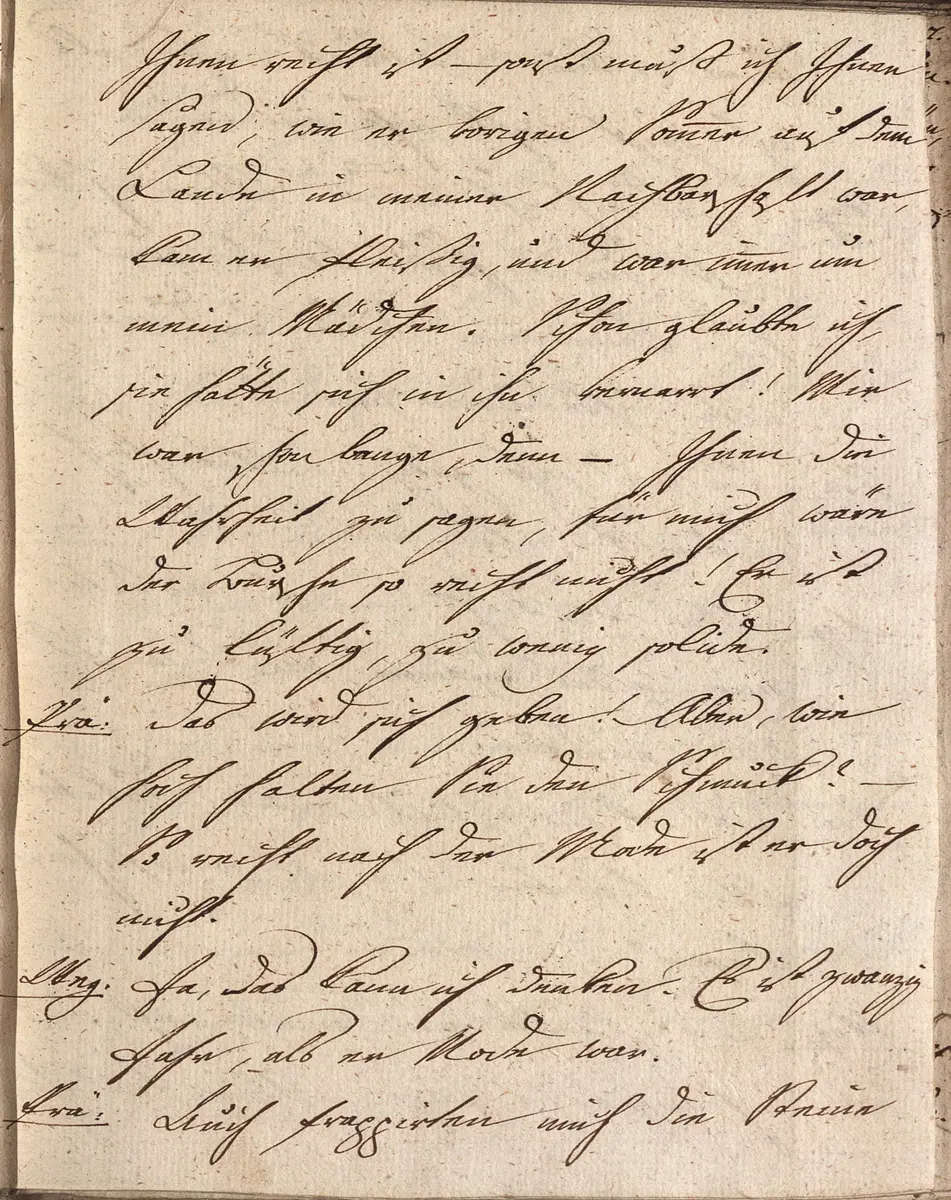 Ihnen recht ist – sonst muß ich Ihnen
sagen, wie er vorigen Som̅er auf dem
Lande in meiner Nachbarschaft war,
kam er fleißig, und war im̅er um
mein Mädchen. Schon glaubte ich,
sie hätte sich in ihn vernarrt! Mir
war schon bange, denn – Ihnen die
Wahrheit zu sagen, für mich wäre
der Bursche so recht nicht! Er ist
zu lustig, zu wenig solide.
Prä: Das wird sich geben! Aber, wie
hoch halten Sie den Schmuck? –
So recht nach der Mode ist er doch
nicht.
Weg. Ja, das kann ich denken. Es ist zwanzig
Jahr, als er Mode war.
Prä: Auch frappirten mich die Steine